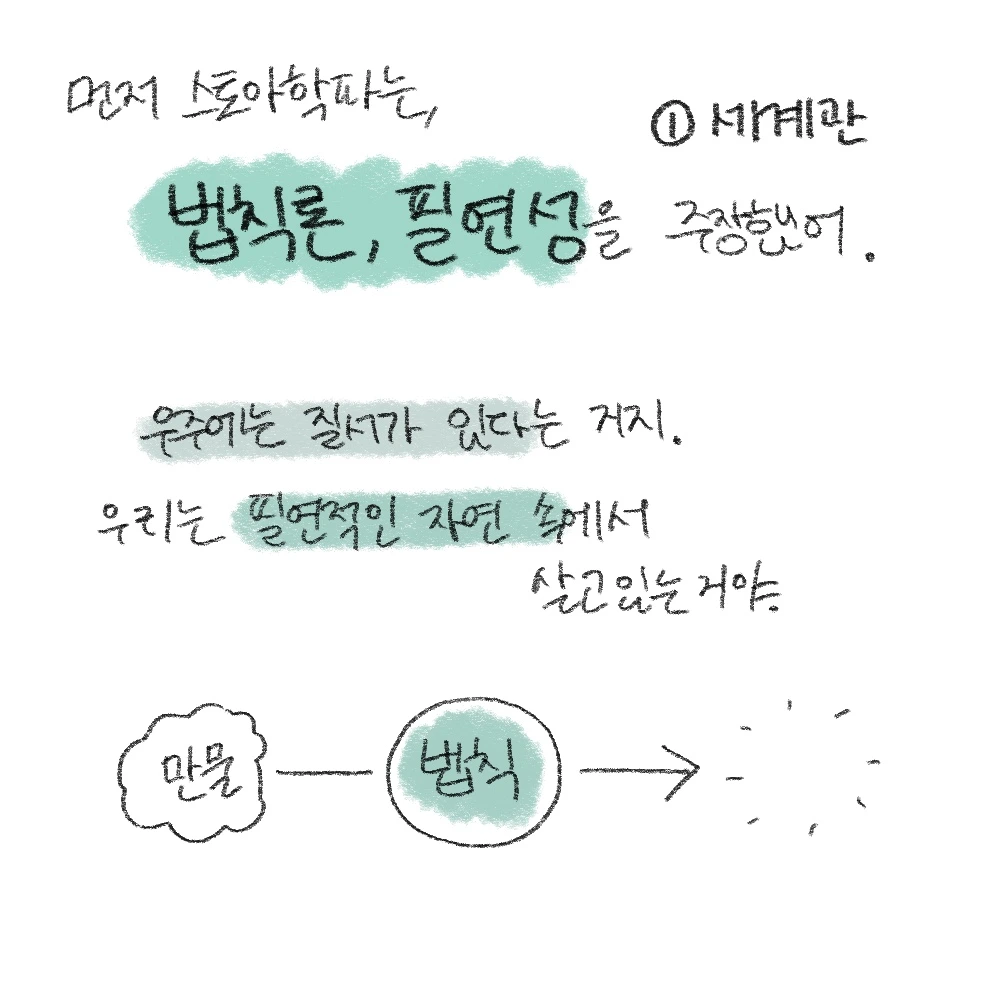 먼저 스토아학파는,
① 세계관
법칙론, 필연성을 주장했어.
우주에는 질서가 있다는 거지.
우리는 필연적인 자연 속에서
살고있는거야.
만물
법칙